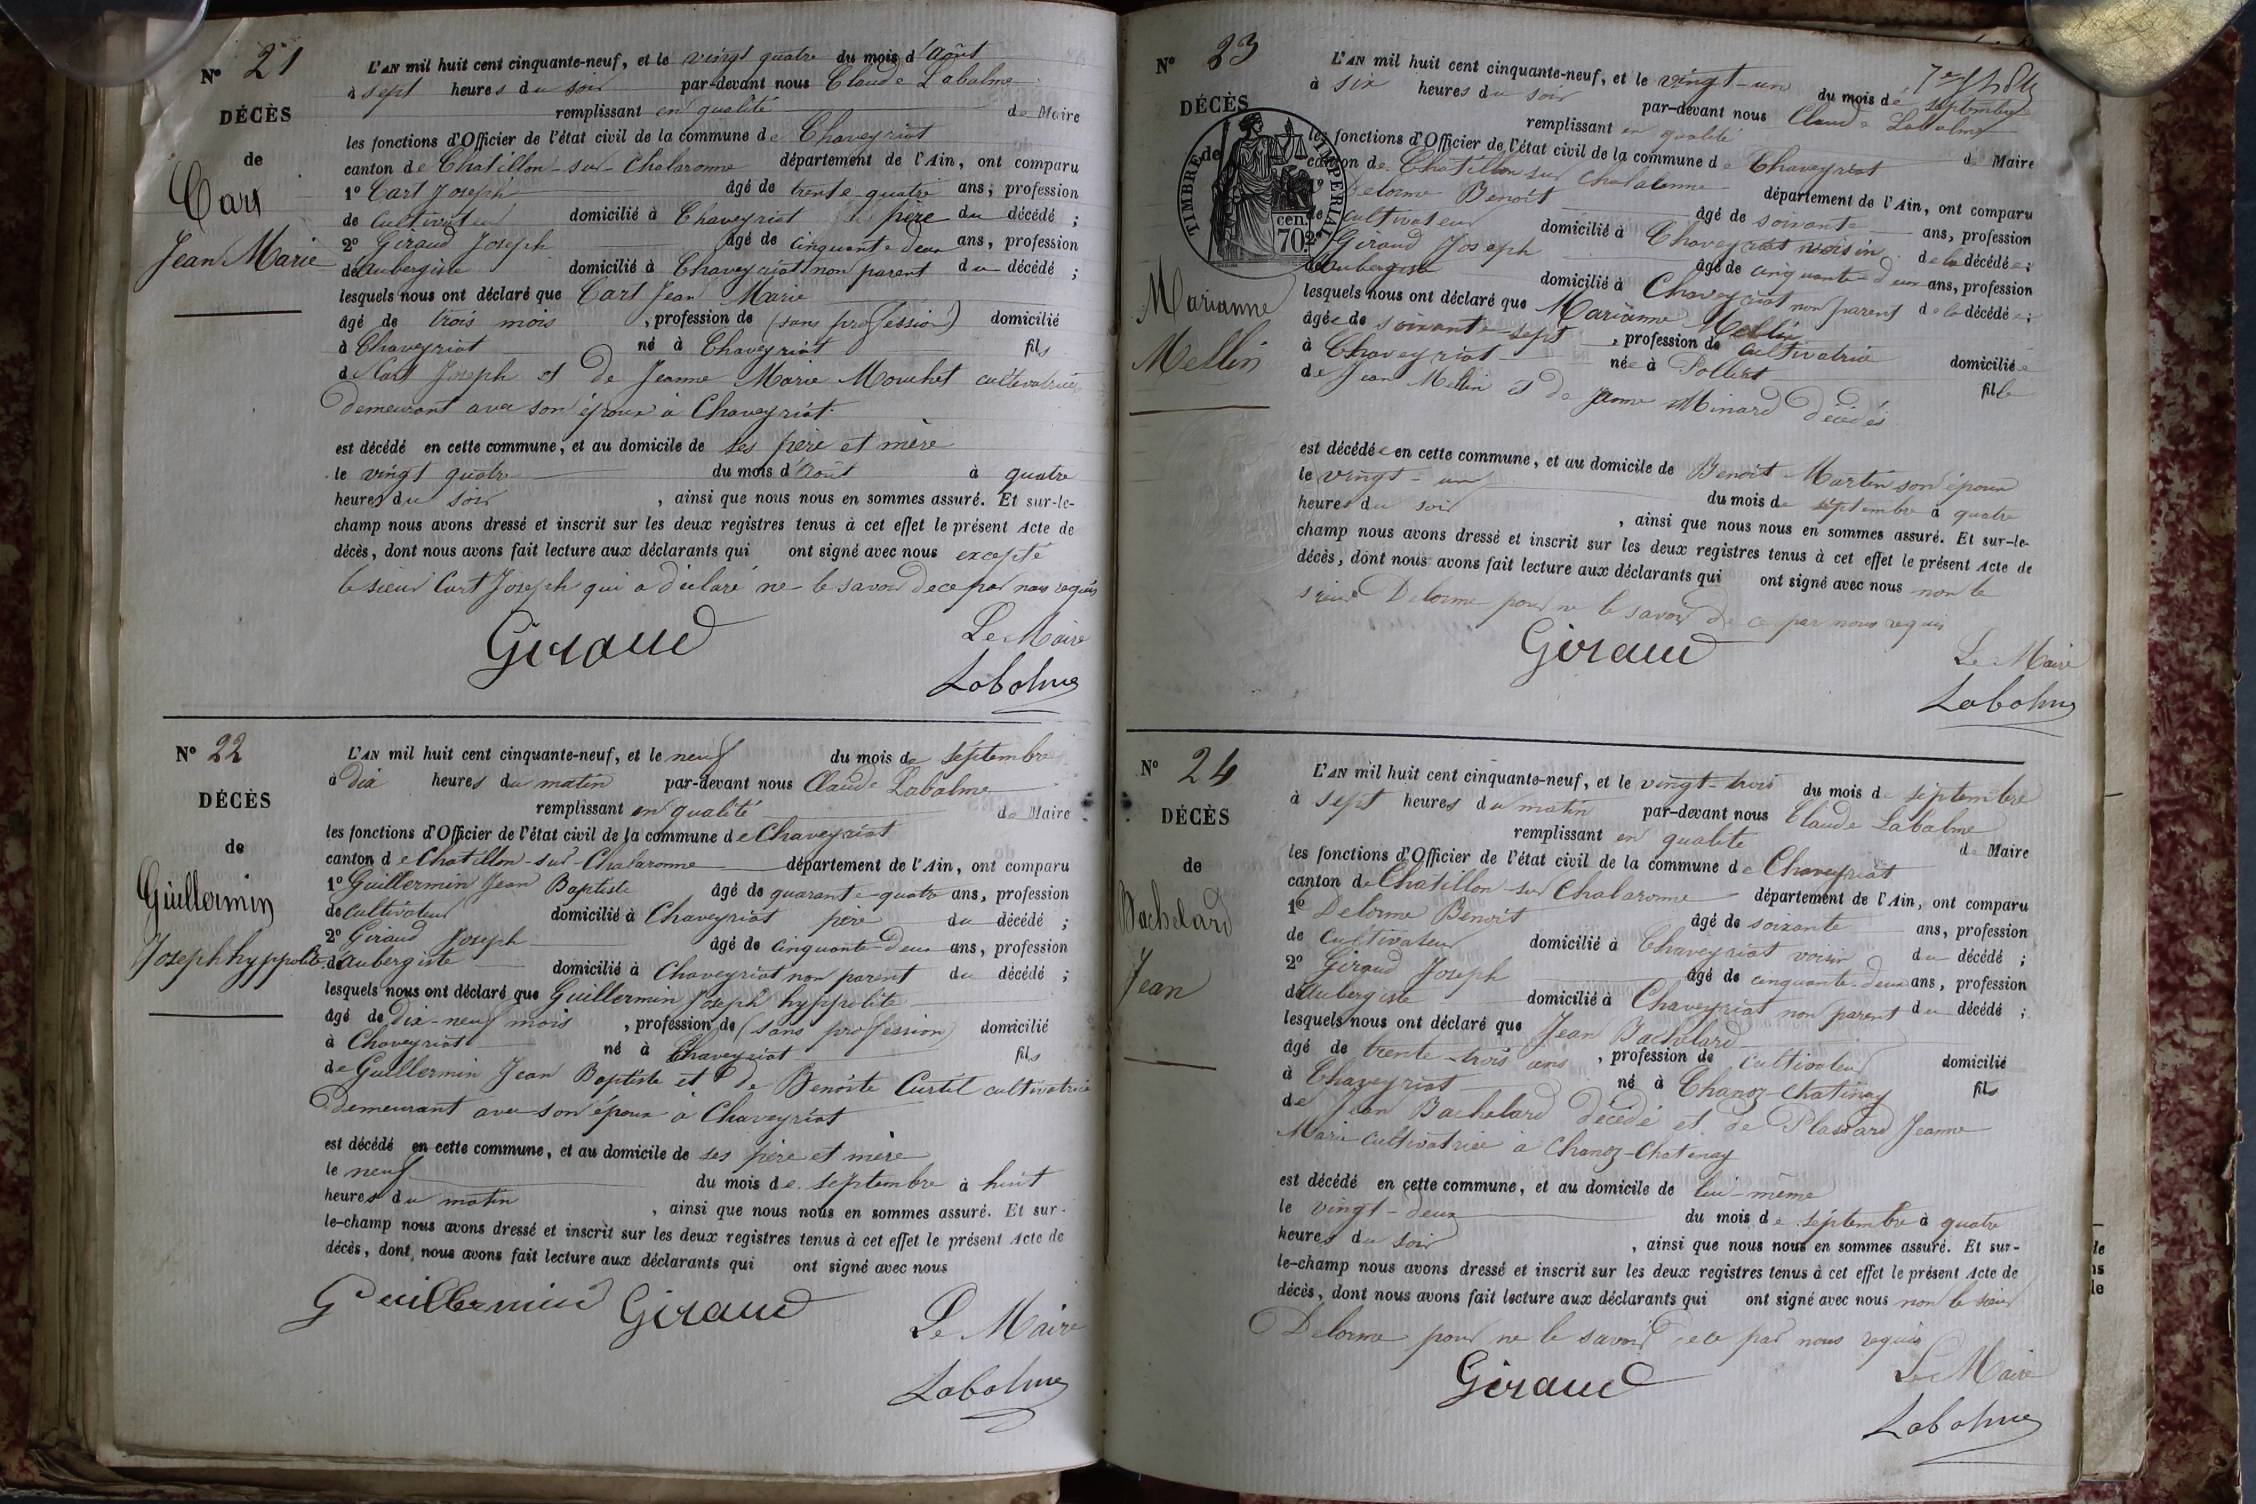 N° 21
DÉCÈS
de
Cart
Jean Marie
L'AN mil huit cent cinquante-neuf, et le vingt quatre du mois d'août
à sept heures du soir par-devant nous Claude Labalme
remplissant en qualité de Maire
les fonctions d'Officier de l'état civil de la commune de Chaveyriat
canton de Chatillon-sur-Chalaronne département de l'Ain, ont comparu
1° Cart Joseph âgé de trente quatre ans, profession
de cultivateur domicilié à Chaveyriat père du décédé ;
2° Giraud Joseph âgé de cinquante deux ans, profession
d'aubergiste domicilié à Chaveyriat non parent du décédé ;
lesquels nous ont déclaré que Cart Jean Marie
âgé de trois mois , profession de (sans profession) domicilié
à Chaveyriat né à Chaveyriat fils
de Cart Joseph et de Jeanne Marie Mouchet cultivatrice
demeurant avec son époux à Chaveyriat.
est décédé en cette commune, et au domicile de ses père et mère
le vingt quatre du mois d'août à quatre
heures du soir , ainsi que nous nous en sommes assuré. Et sur-le-
champ nous avons dressé et inscrit sur les deux registres tenus à cet effet le présent Acte de
décès, dont nous avons fait lecture aux déclarants qui ont signé avec nous excepté
le sieur Cart Joseph qui a déclaré ne le savoir de ce par nous requis
Giraud
Le Maire
Labalme
N° 22
DÉCÈS
de
Guillermin
Joseph hyppolite
L'AN mil huit cent cinquante-neuf, et le neuf du mois de septembre
à dix heures du matin par-devant nous Claude Labalme
remplissant en qualité de Maire
les fonctions d'Officier de l'état civil de la commune de Chaveyriat
canton de Chatillon-sur-Chalaronne département de l'Ain, ont comparu
1° Guillermin Jean Baptiste âgé de quarante-quatre ans, profession
de cultivateur domicilié à Chaveyriat père du décédé ;
2° Giraud Joseph âgé de cinquante-deux ans, profession
d'aubergiste domicilié à Chaveyriat non parent du décédé ;
lesquels nous ont déclaré que Guillermin Joseph hyppolite
âgé de dix-neuf mois , profession de (sans profession) domicilié
à Chaveyriat né à Chaveyriat fils
de Guillermin Jean Baptiste et de Benoite Curtil cultivatrice
demeurant avec son époux à Chaveyriat
est décédé en cette commune, et au domicile de ses père et mère
le neuf du mois de septembre à huit
heures du matin , ainsi que nous nous en sommes assuré. Et sur-
le-champ nous avons dressé et inscrit sur les deux registres tenus à cet effet le présent Acte de
décès, dont nous avons fait lecture aux déclarants qui ont signé avec nous
Guillermin Giraud
Le Maire
Labalme
N° 23
DÉCÈS
de
TIMBRE IMPERIAL
cen.
70.
Marianne
Mellin
L'AN mil huit cent cinquante-neuf, et le vingt-un du mois de septembre
à six heures du soir par-devant nous Claude Labalme
remplissant en qualité de Maire
les fonctions d'Officier de l'état civil de la commune de Chaveyriat
canton de Chatillon sur Chalaronne département de l'Ain, ont comparu
1° Delorme Benoit âgé de soixante ans, profession
de cultivateur domicilié à Chaveyriat voisin de la décédée ;
2° Giraud Joseph âgé de cinquante deux ans, profession
d'aubergiste domicilié à Chaveyriat non parent de la décédée ;
lesquels nous ont déclaré que Marianne Mellin
âgée de soixante-sept , profession de cultivatrice domiciliée
à Chaveyriat née à Polliat fille
de Jean Mellin et de Jeanne Minard décédés
est décédée en cette commune, et au domicile de Benoit Martin son époux
le vingt-un du mois de septembre à quatre
heures du soir , ainsi que nous nous en sommes assuré. Et sur-le-
champ nous avons dressé et inscrit sur les deux registres tenus à cet effet le présent Acte de
décès, dont nous avons fait lecture aux déclarants qui ont signé avec nous non le
sieur Delorme pour ne le savoir de ce par nous requis
Giraud
Le Maire
Labalme
N° 24
DÉCÈS
de
Bachelard
Jean
L'AN mil huit cent cinquante-neuf, et le vingt-trois du mois de septembre
à sept heures du matin par-devant nous Claude Labalme
remplissant en qualité de Maire
les fonctions d'Officier de l'état civil de la commune de Chaveyriat
canton de Chatillon-sur Chalaronne département de l'Ain, ont comparu
1° Delorme Benoit âgé de soixante ans, profession
de cultivateur domicilié à Chaveyriat voisin du décédé ;
2° Giraud Joseph âgé de cinquante-deux ans, profession
d'aubergiste domicilié à Chaveyriat non parent du décédé ;
lesquels nous ont déclaré que Jean Bachelard
âgé de trente-trois ans , profession de cultivateur domicilié
à Chaveyriat né à Chanoz-Chatenay fils
de Jean Bachelard décédé et de Plassard Jeanne
Marie cultivatrice à Chanoz-Chatenay
est décédé en cette commune, et au domicile de lui-même
le vingt-deux du mois de septembre à quatre
heures du soir , ainsi que nous nous en sommes assuré. Et sur-
le-champ nous avons dressé et inscrit sur les deux registres tenus à cet effet le présent Acte de
décès, dont nous avons fait lecture aux déclarants qui ont signé avec nous non le sieur
Delorme pour ne le savoir de ce par nous requis
Giraud
Le Maire
Labalme